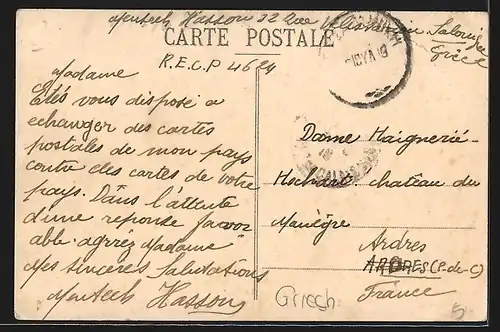 Mentech Hasson 22 Rue Salonique
CARTE POSTALE
Grèce
R.E.C.P 4624
Madame
Etés vous disposé a
echanger des cartes
postales de mon pays
contre des cartes de votre
pays. Dans l'attente
d'une reponse favor
able agréez Madame
mes sincères Salutations
Mentech Hasson
Dame Haignerié-
Hochard. chateau du
Manègre
Ardres
ARDRES (P-de-C)
France
Griech.